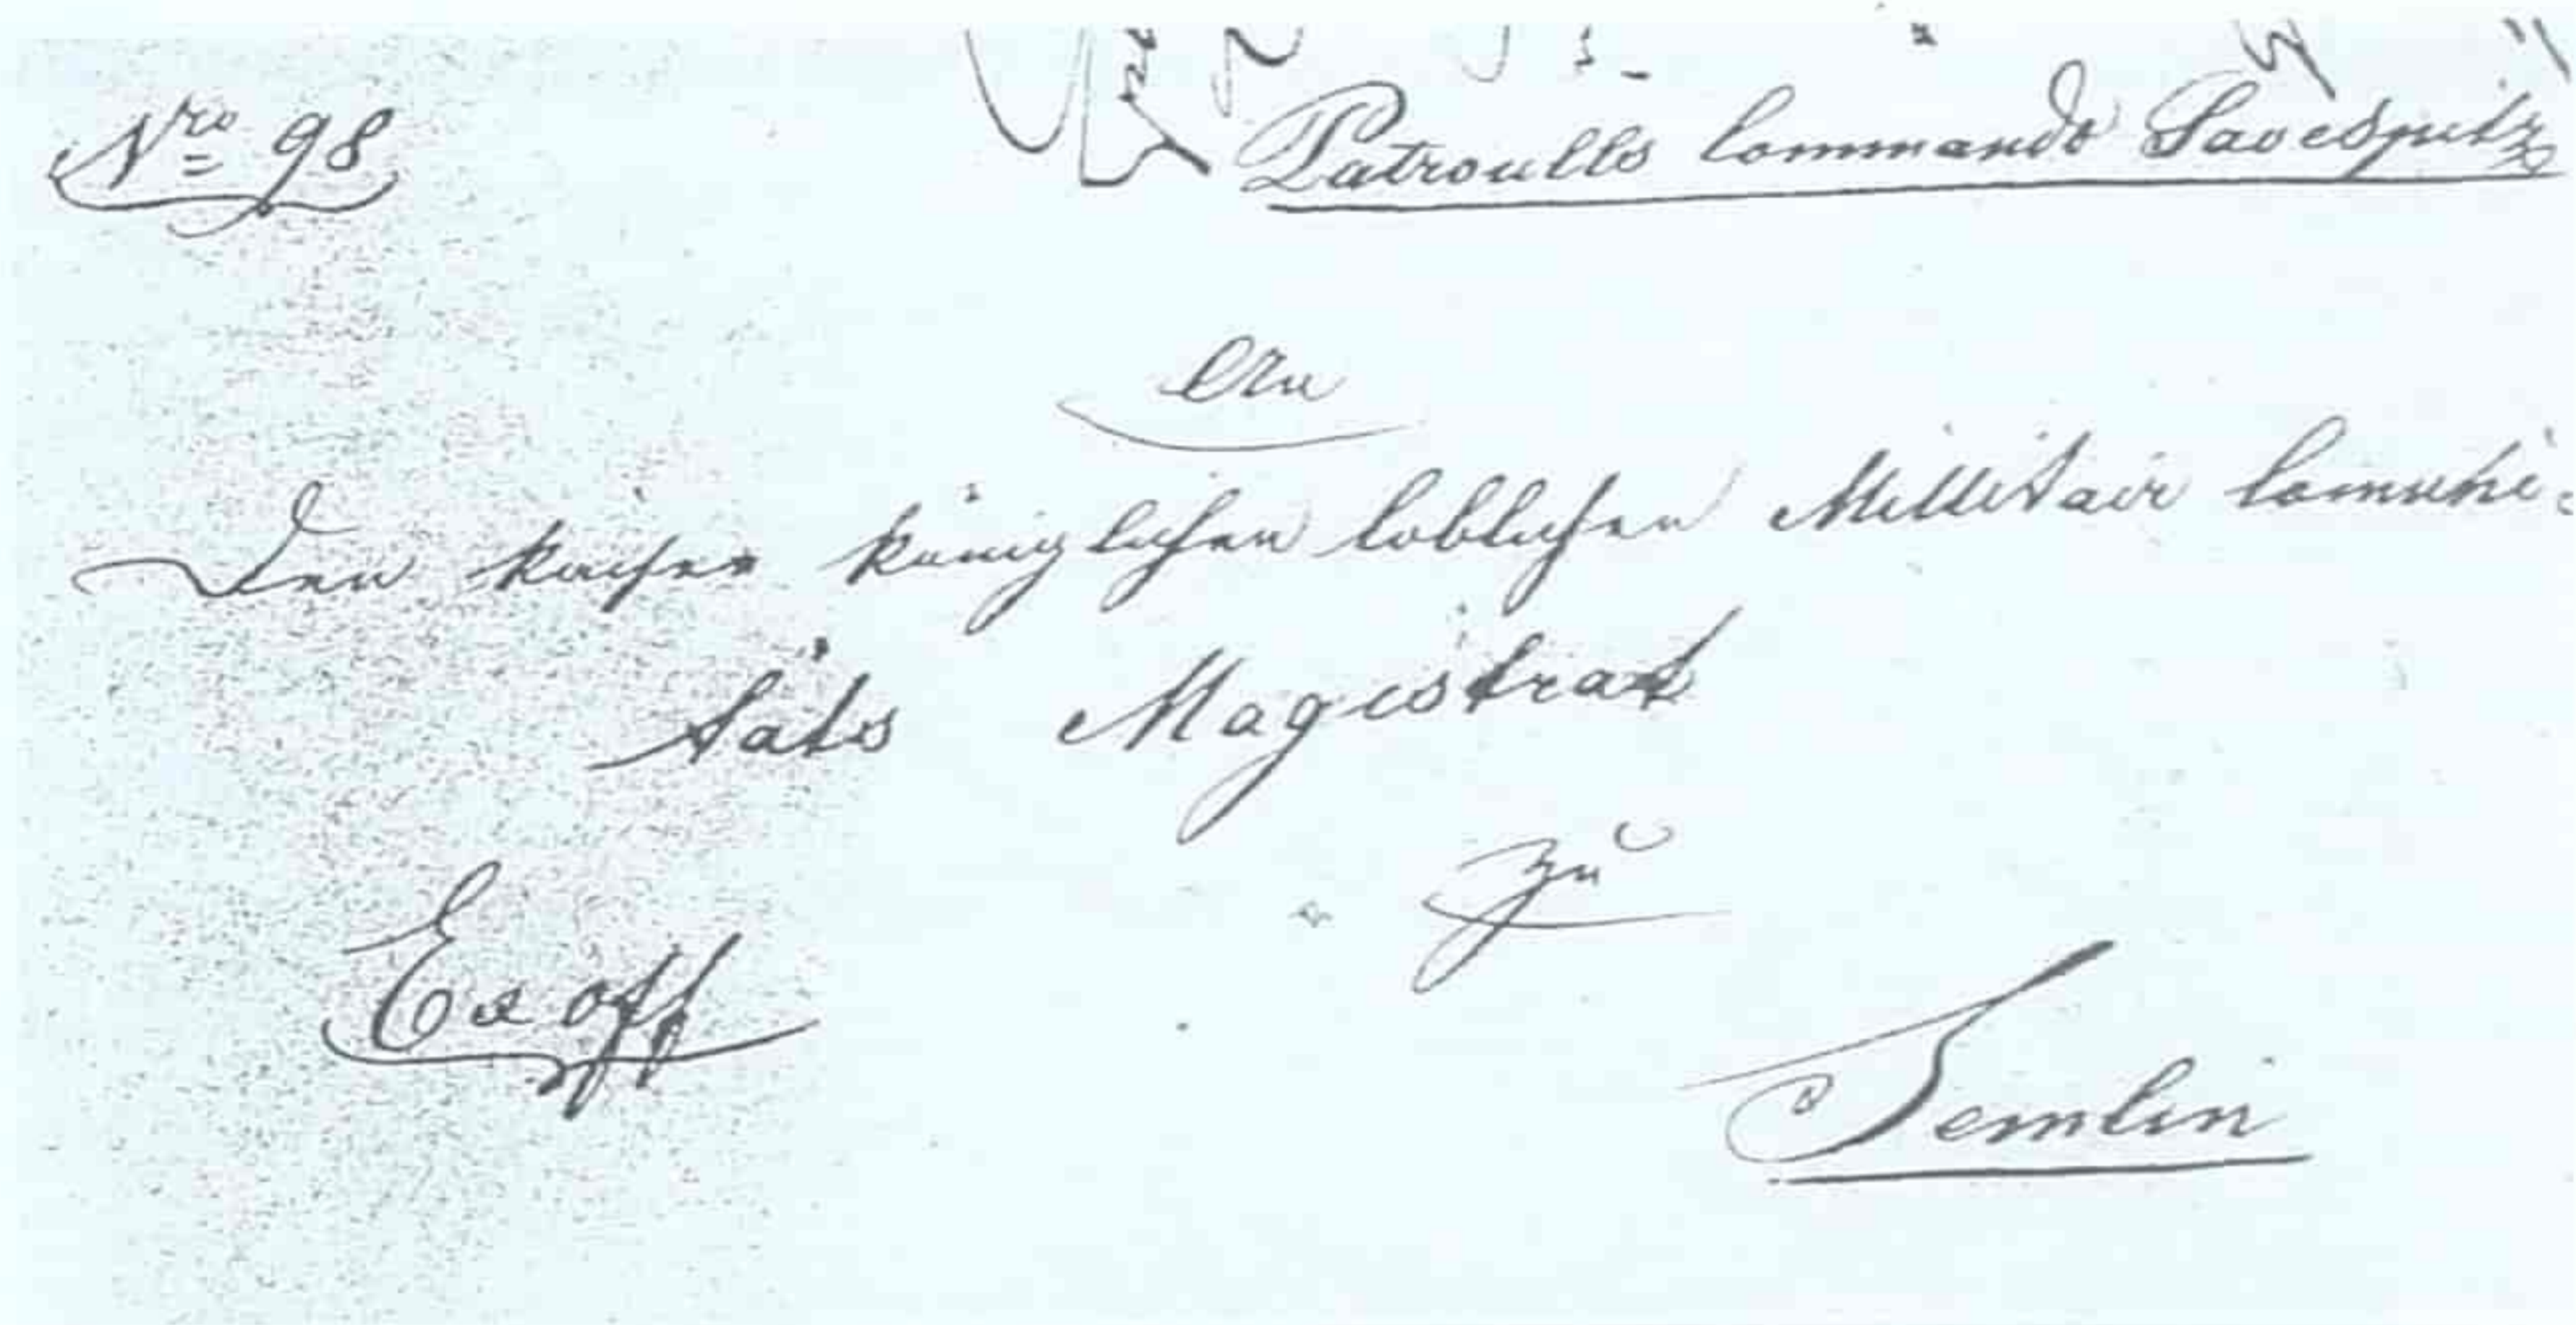 Nro 98
Patroulls Commando Savespitz
An
Den kaiser königlichen loblichen Millitair Comuni-
täts Magistrat
zu
Ex off
Semlin